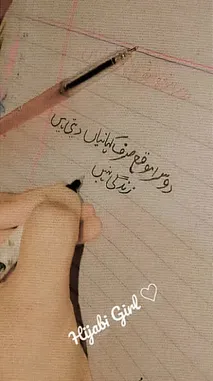 دوسرا موقع صرف کہانیاں دیتی ہیں
زندگی نہیں
Hijabi Girl ♡